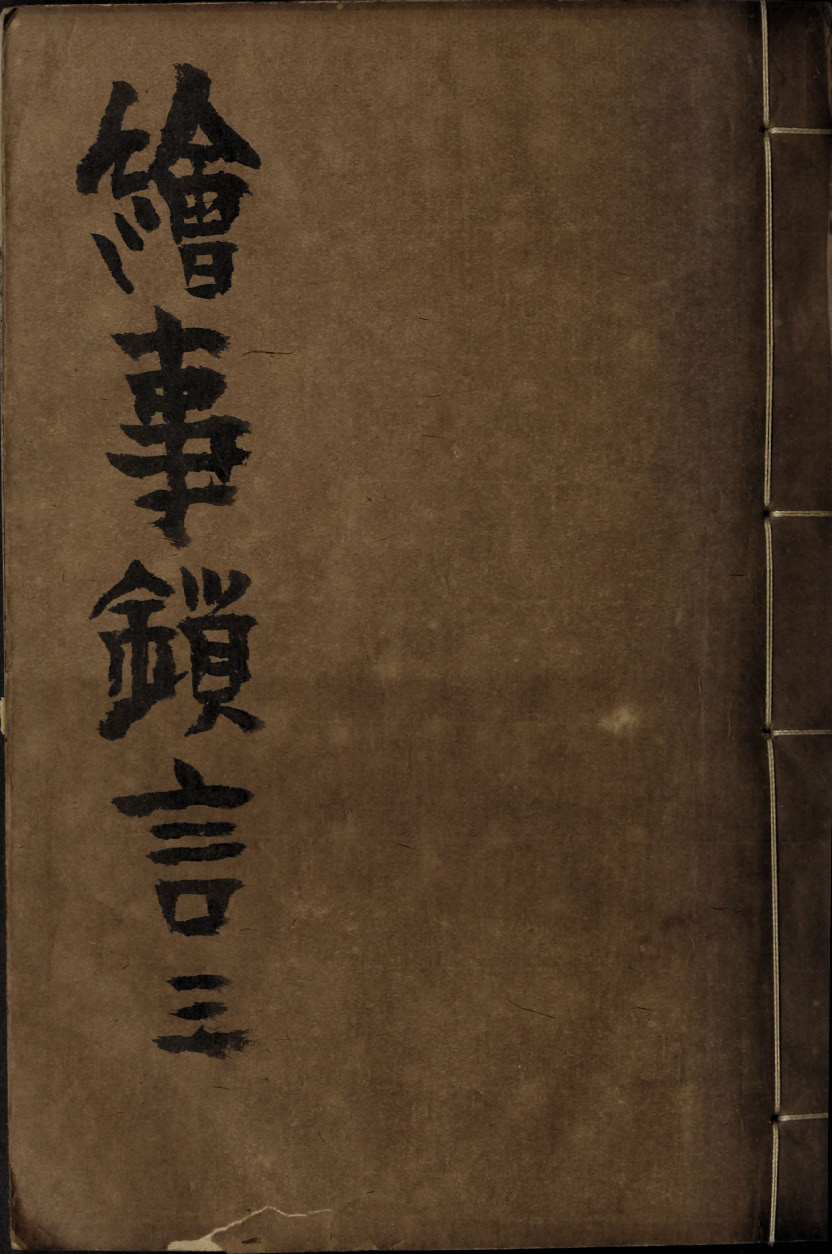 繪事鎖言三